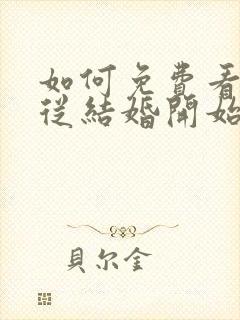 如何免費看
從結婚開始
貝尔金